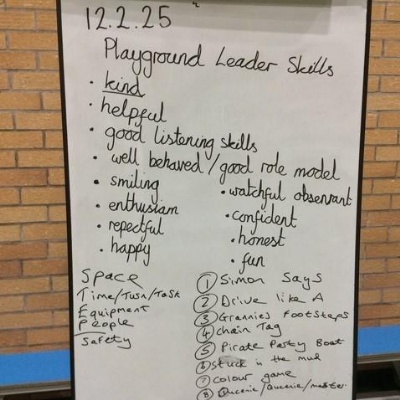 12.2.25
Playground Leader Skills
• kind
• helpful
• good listening skills
• well behaved / good role model
• smiling
• enthusiasm
• repectful
• happy
• watchful observant
• confident
• honest
• fun
Space
Time/Turn/Task
Equipment
People
Safety
1 Simon Says
2 Drive like A
3 Grannies Footsteps
4 chain Tag
5 Pirate Pasty Boat
6 Stuck in the mud
7 colour game
8 Queenie/Queenie/master.